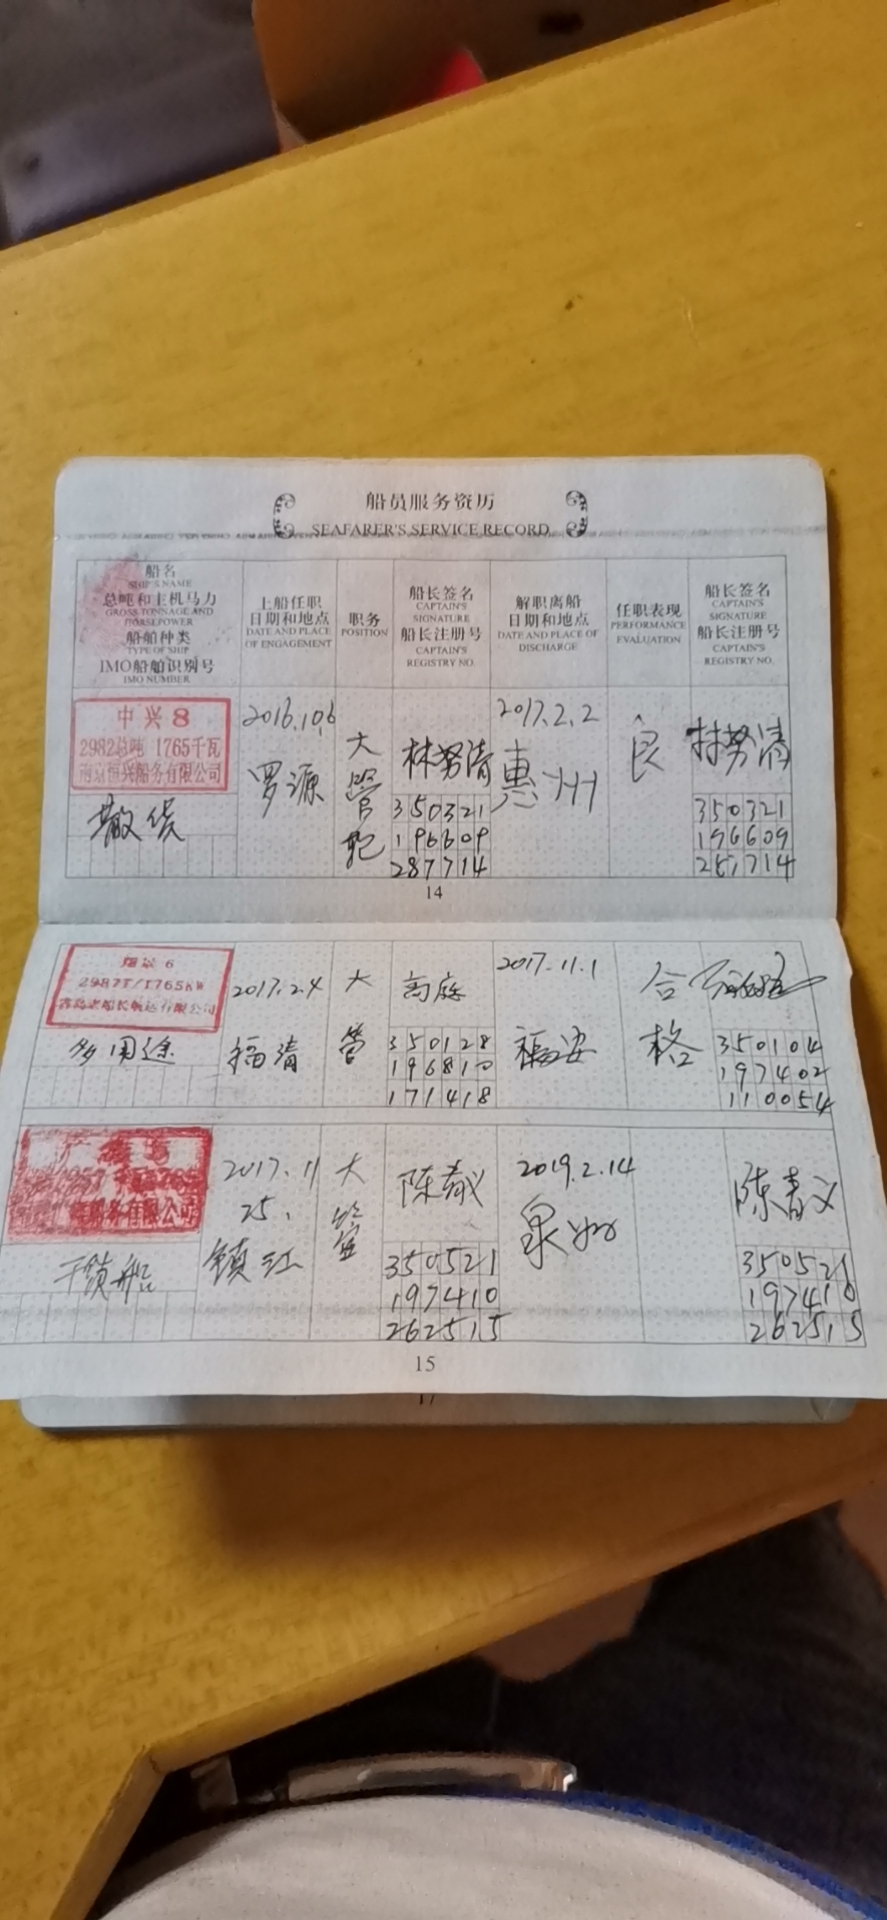 船员服务资历
SEAFARER'S SERVICE RECORD
船名
SHIP'S NAME
总吨和主机马力
GROSS TONNAGE AND
HORSEPOWER
船舶种类
TYPE OF SHIP
IMO船舶识别号
IMO NUMBER
上船任职
日期和地点
DATE AND PLACE
OF ENGAGEMENT
职务
POSITION
船长签名
CAPTAIN'S
SIGNATURE
船长注册号
CAPTAIN'S
REGISTRY NO.
解职离船
日期和地点
DATE AND PLACE OF
DISCHARGE
任职表现
PERFORMANCE
EVALUATION
船长签名
CAPTAIN'S
SIGNATURE
船长注册号
CAPTAIN'S
REGISTRY NO.
中兴8
2982总吨 1765千瓦
南京恒兴船务有限公司
散货
2016.10.6
罗源
大
管
轮
林努清
350321
196609
287714
2017.2.2
惠州
良
林努清
350321
196609
287714
14
6
2987T/1765KW
多用途
2017.2.4
福清
大
管
350128
196810
171418
2017.11.1
福安
合
格
350104
197402
110054
务有限公司
干货船
2017.11
25.
镇江
大
管
陈春义
350521
197410
262515
2019.2.14
泉州
陈春义
350521
197410
262515
15
17